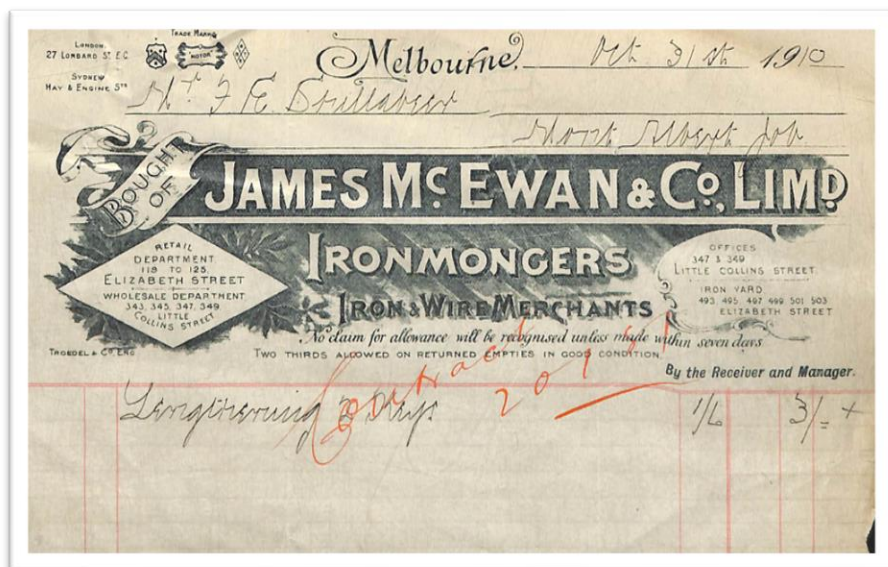 LONDON
27 LOMBARD ST. E.C.
SYDNEY
HAY & ENGINE STS
TRADE MARKS
"MOTOR"
Melbourne, Oct 31st 1910
Mr F E Shillabeer
Mont Albert Job
BOUGHT OF
JAMES McEWAN & Co, LIMD
IRONMONGERS
IRON & WIRE MERCHANTS
RETAIL
DEPARTMENT
118 TO 125,
ELIZABETH STREET
WHOLESALE DEPARTMENT
343, 345, 347, 349
LITTLE
COLLINS STREET
OFFICES
347 & 349
LITTLE COLLINS STREET
IRON YARD
493 495 497 499 501 503
ELIZABETH STREET
No claim for allowance will be recognised unless made within seven days
TWO THIRDS ALLOWED ON RETURNED EMPTIES IN GOOD CONDITION.
TROEDEL & Co ENG
By the Receiver and Manager.
Contract
Lengthening 2 Keys 1/6 3/- +